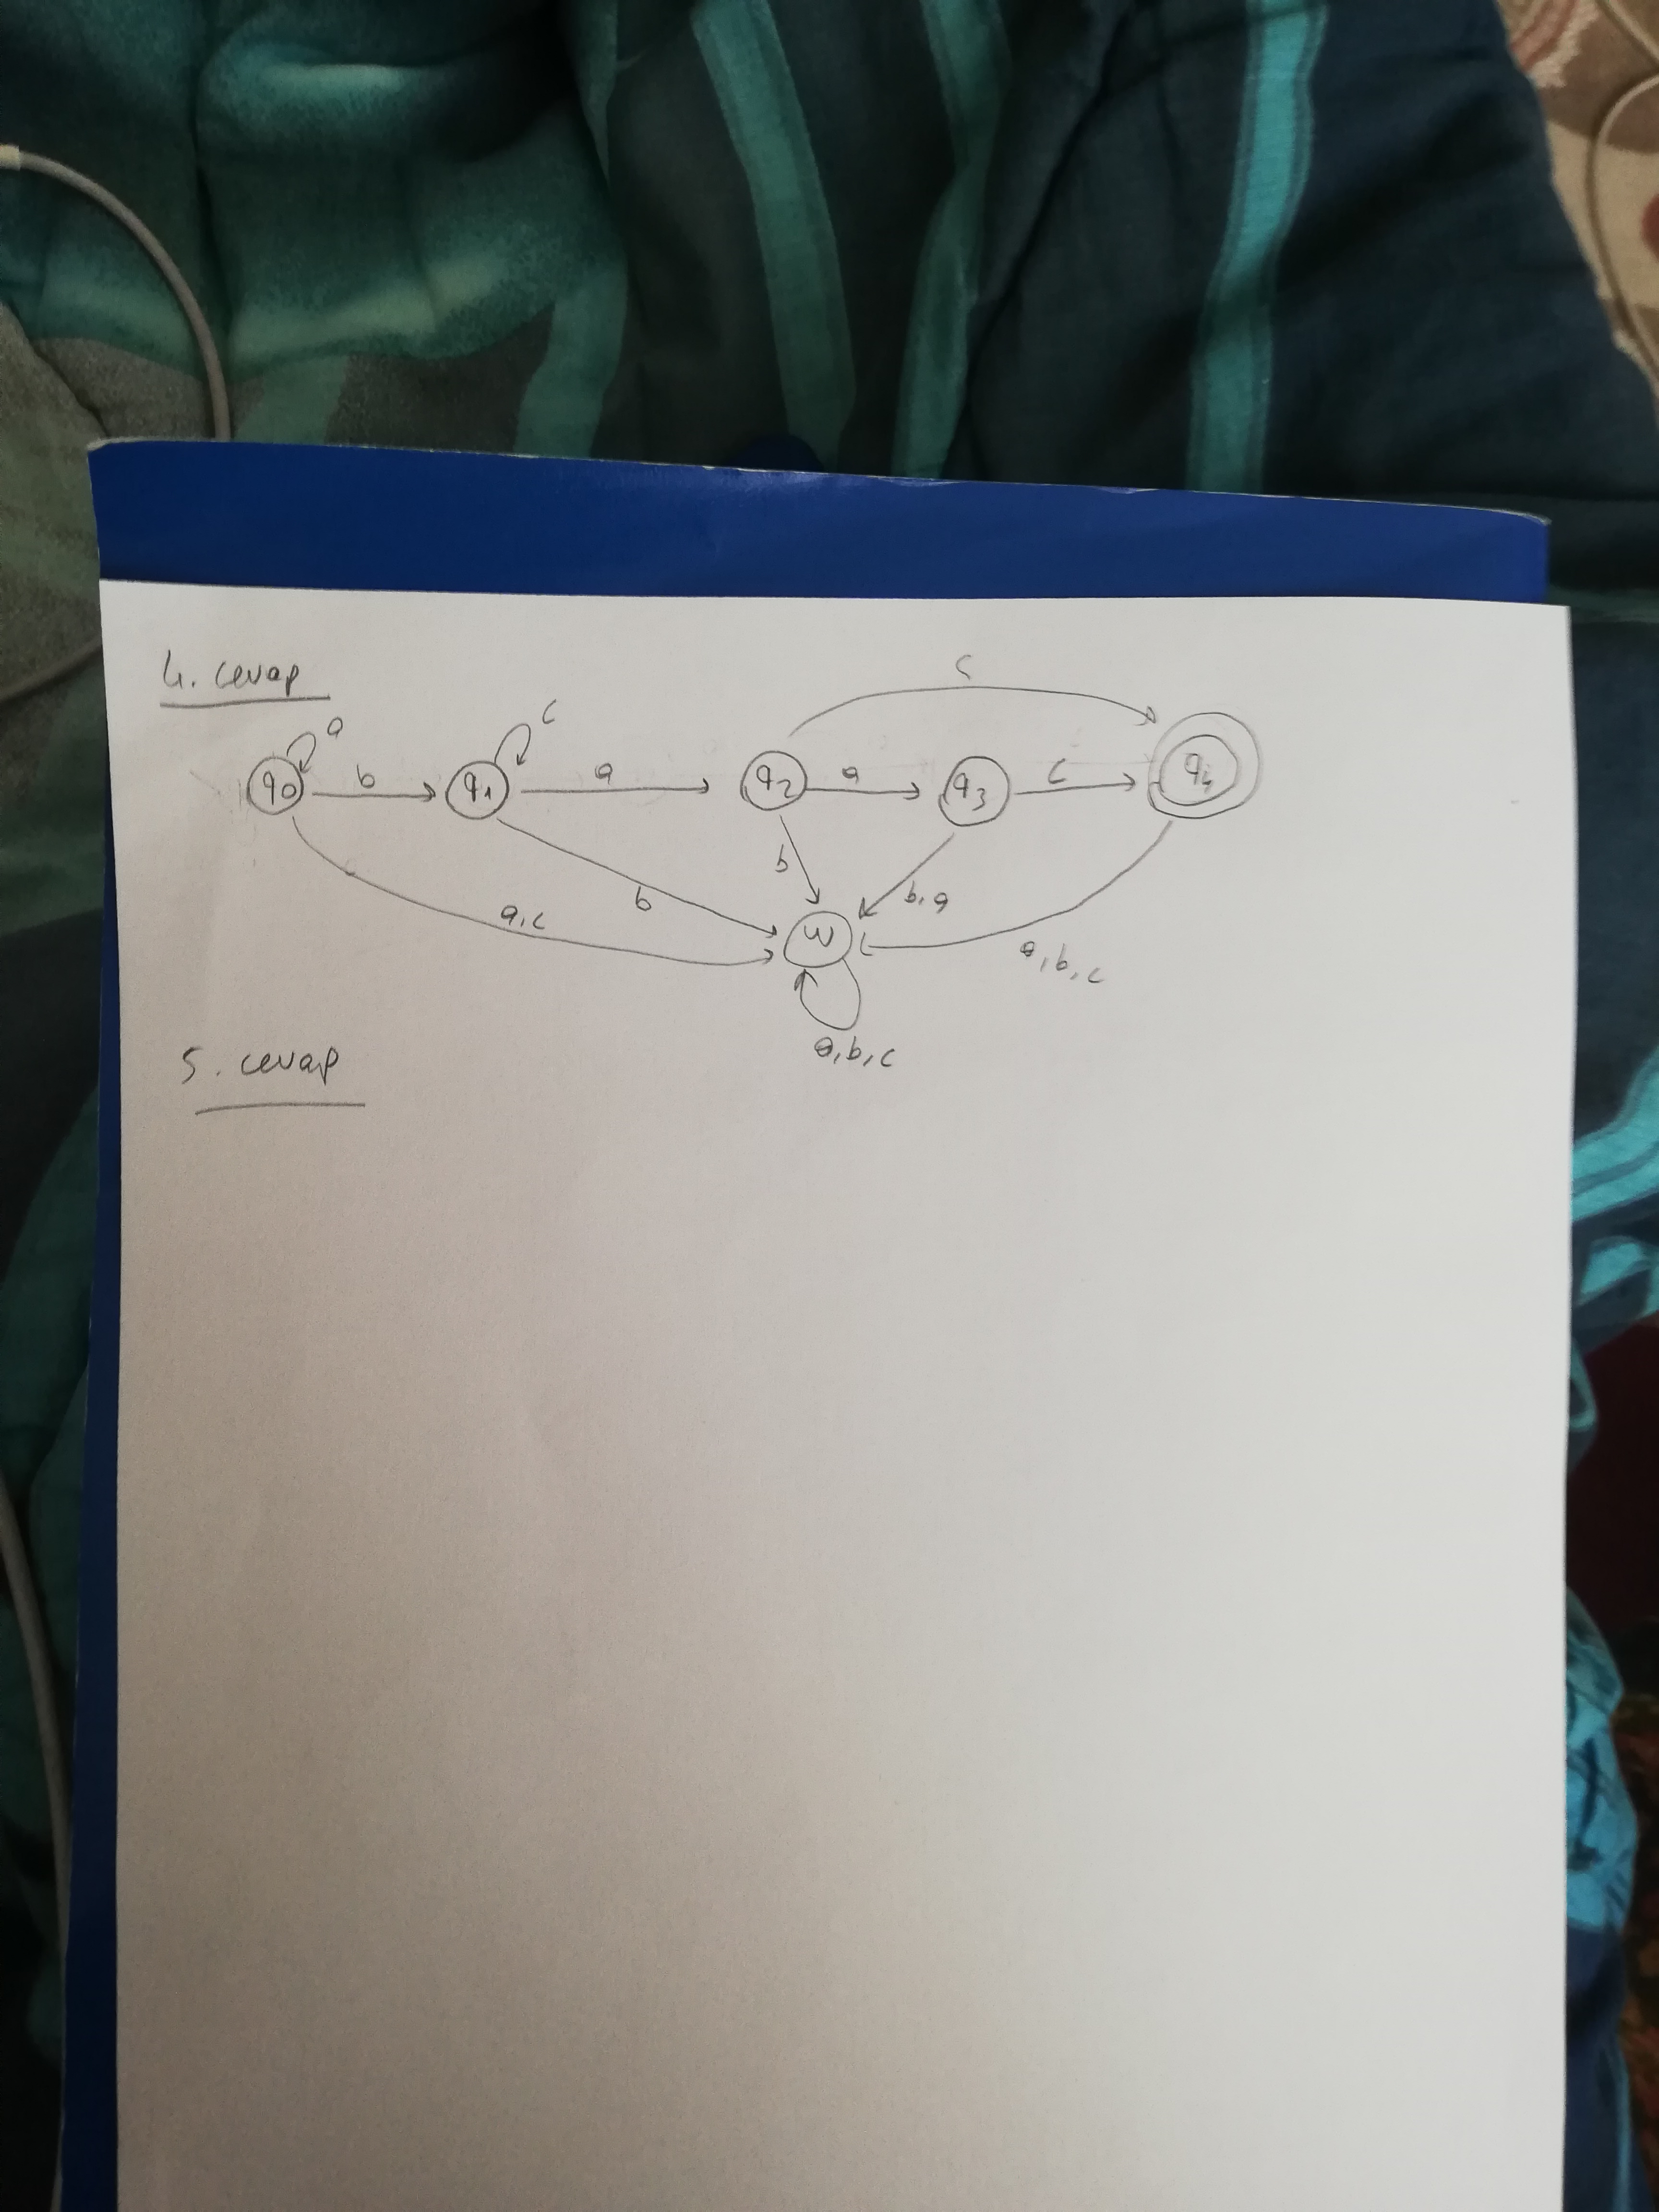 4. cevap
c
a c
q0 b q1 a q2 a q3 c q4
b
a,c b b,a
w a,b,c
a,b,c
5. cevap